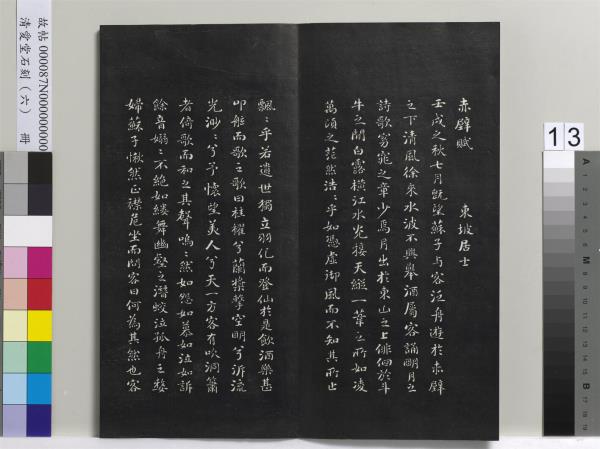 赤壁賦 東坡居士
壬戌之秋七月既望蘇子与客泛舟遊於赤壁
之下清風徐來水波不興舉酒屬客誦明月之
詩歌窈窕之章少焉月出於東山之上徘徊於斗
牛之間白露橫江水光接天縱一葦之所如凌
萬頃之茫然浩〻乎如憑虛御風而不知其所止
飄〻乎若遺世獨立羽化而登仙於是飲酒樂甚
叩舷而歌之歌曰桂櫂兮蘭槳擊空明兮泝流
光渺〻兮予懷望美人兮天一方客有吹洞簫
者倚歌而和之其聲嗚〻然如怨如慕如泣如訴
餘音嫋〻不絕如縷舞幽壑之潛蛟泣孤舟之嫠
婦蘇子愀然正襟危坐而問客曰何為其然也客
故帖 000087N000000000
清愛堂石刻（六） 冊
13
A 1 2 3 4 5 6 M 8 9 10 11 12 13 14 15 B 17 18 19